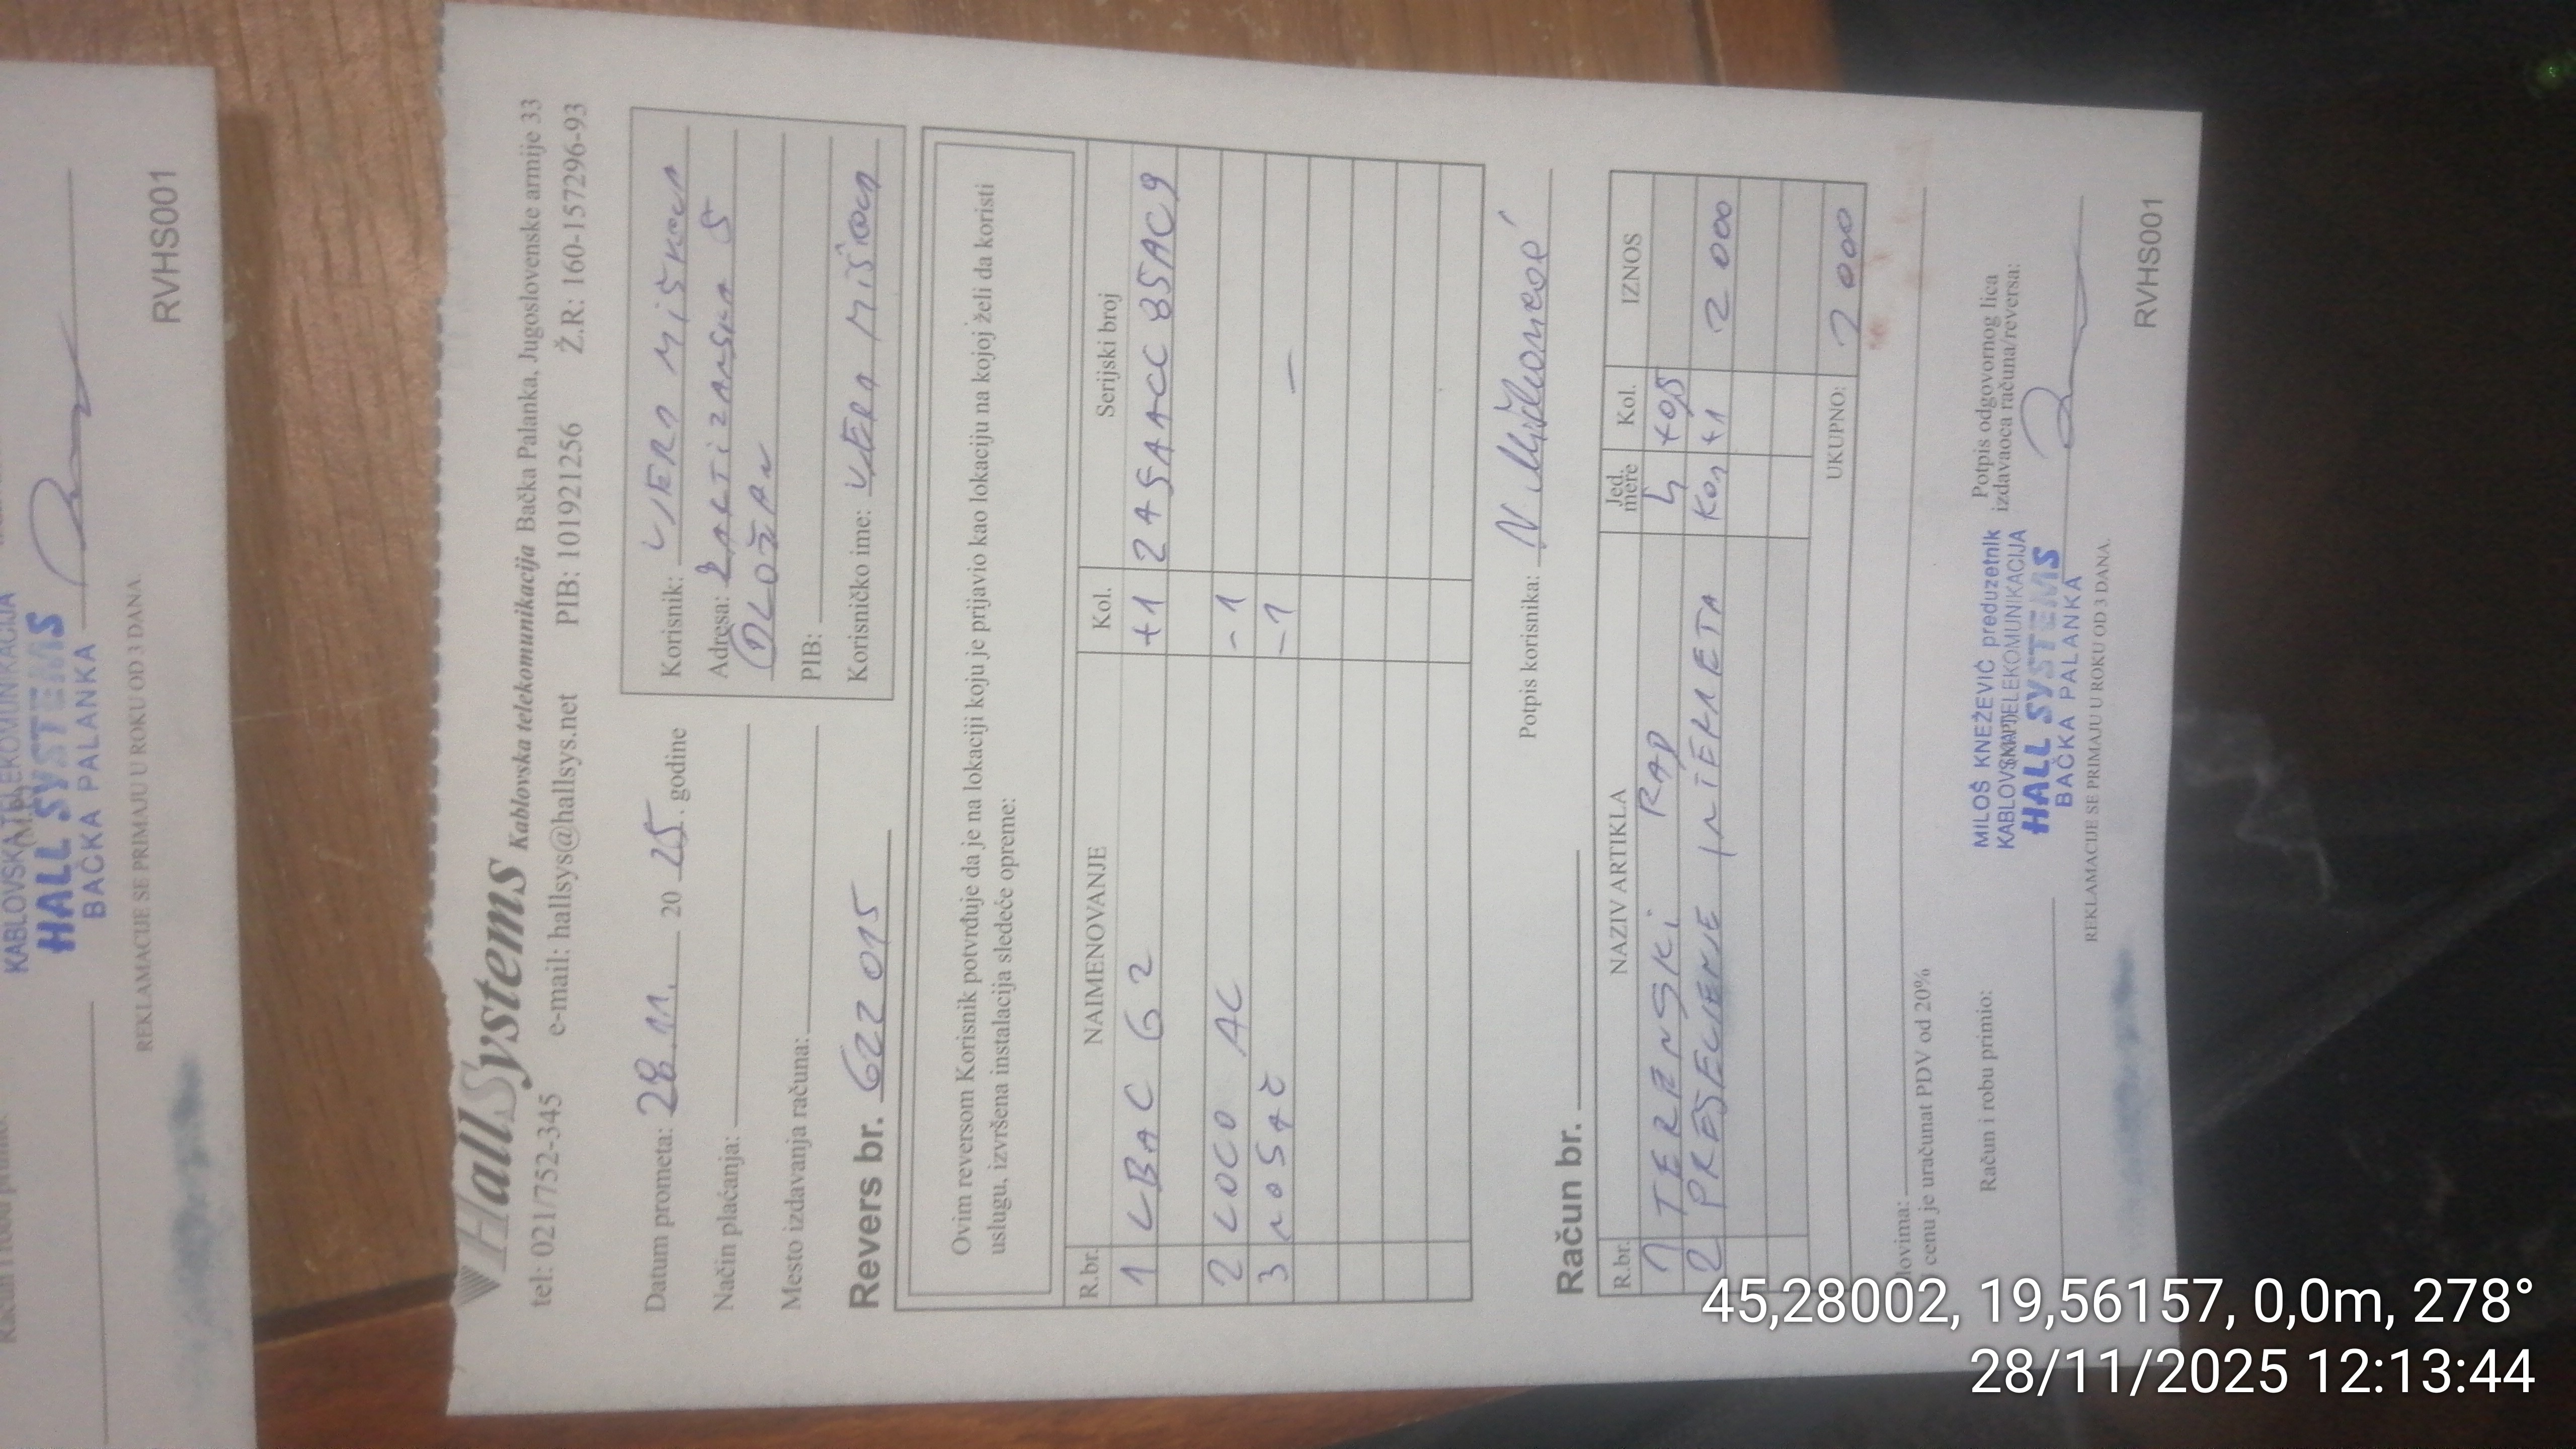 HallSystems Kablovska telekomunikacija Bačka Palanka, Jugoslovenske armije 33
tel: 021/752-345 e-mail: hallsys@hallsys.net PIB: 101921256 Ž.R: 160-157296-93
Datum prometa: 28.11. 2025. godine
Način plaćanja:
Mesto izdavanja računa:
Revers br. 622015
Korisnik: VERA MIŠKOV
Adresa: 5
PIB:
Korisničko ime: VERA
Ovim reversom Korisnik potvrđuje da je na lokaciji koju je prijavio kao lokaciju na kojoj želi da koristi
uslugu, izvršena instalacija sledeće opreme:
R.br. NAIMENOVANJE Kol. Serijski broj
1 LBAC G2 +1 245AACC
2 LOCO AC -1
3 NOSAČ -1 —
Potpis korisnika:
Račun br.
R.br. NAZIV ARTIKLA Jed. mere Kol. IZNOS
1 TERENSKI RAD h +0,5
2 PRESELJENJE INTERNETA KOM +1 2000
UKUPNO: 2000
cenu je uračunat PDV od 20%
Račun i robu primio:
MILOŠ KNEŽEVIĆ preduzetnik
KABLOVSKA TELEKOMUNIKACIJA
HALL SYSTEMS
BAČKA PALANKA
Potpis odgovornog lica
izdavaoca računa/reversa:
REKLAMACIJE SE PRIMAJU U ROKU OD 3 DANA.
RVHS001
KABLOVSKA TELEKOMUNIKACIJA
HALL SYSTEMS
BAČKA PALANKA
REKLAMACIJE SE PRIMAJU U ROKU OD 3 DANA.
RVHS001
45,28002, 19,56157, 0,0m, 278°
28/11/2025 12:13:44